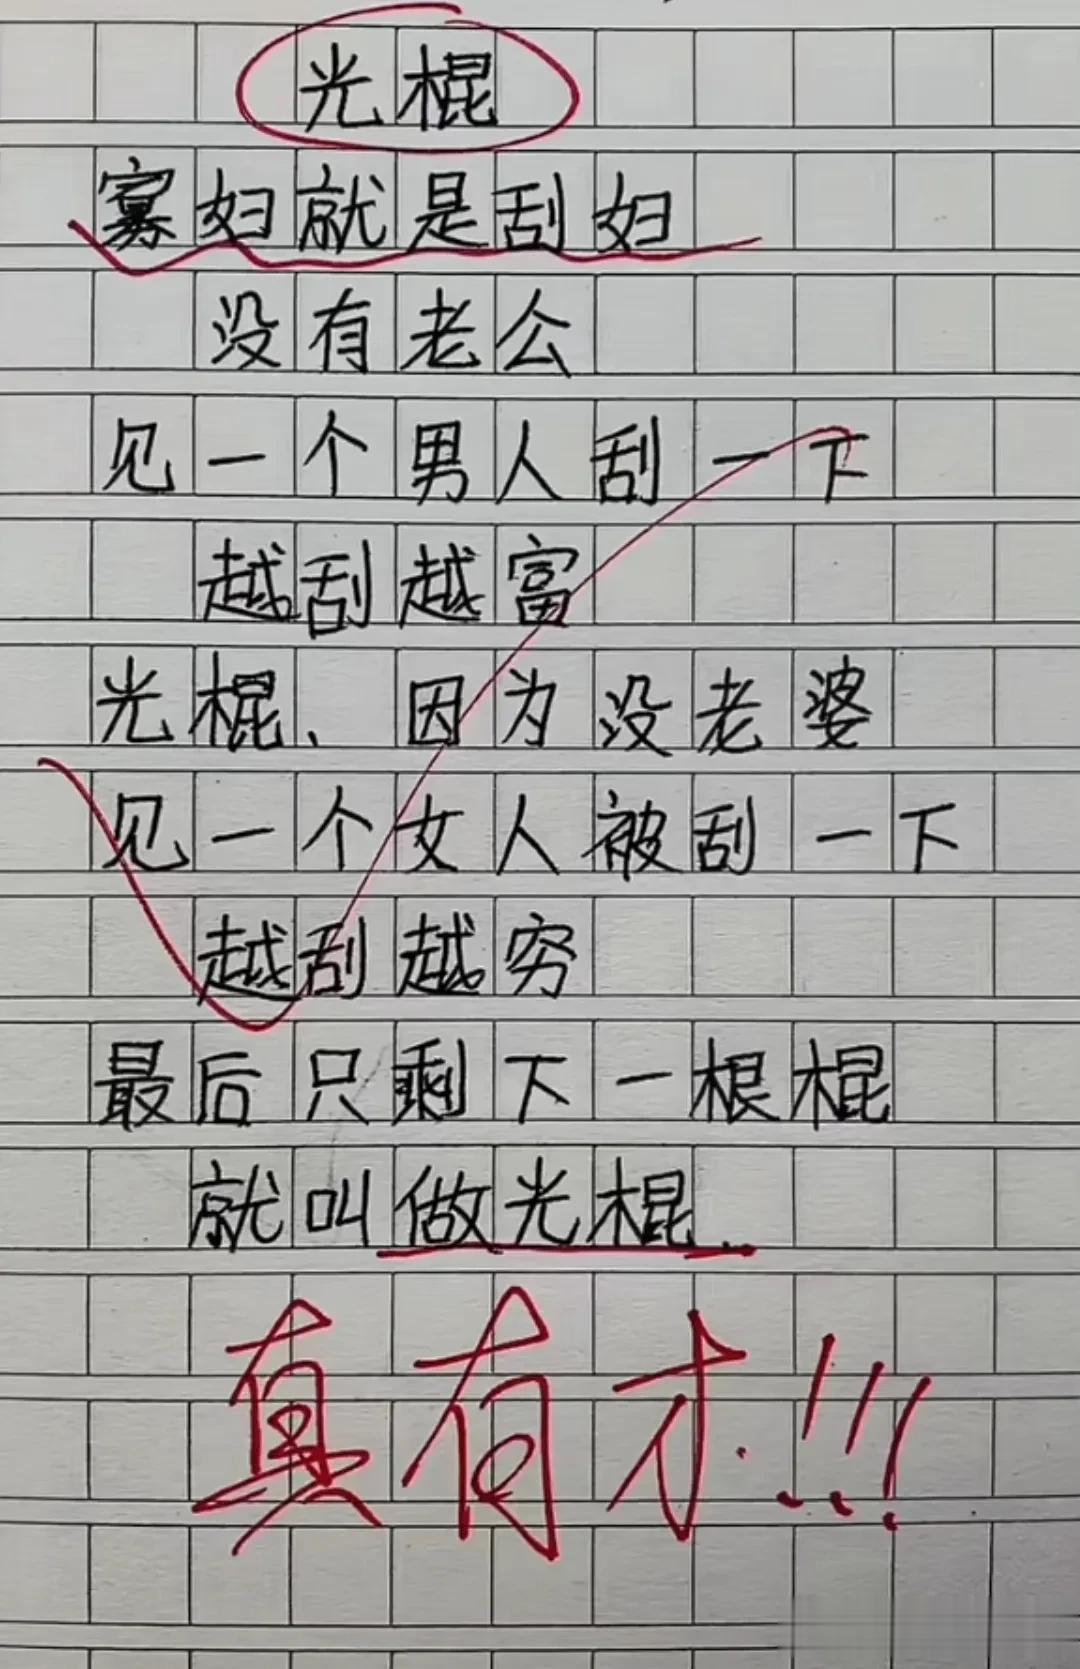 光棍
寡妇就是刮妇
没有老公
见一个男人刮一下
越刮越富
光棍、因为没老婆
见一个女人被刮一下
越刮越穷
最后只剩下一根棍
就叫做光棍..
真有才!!!